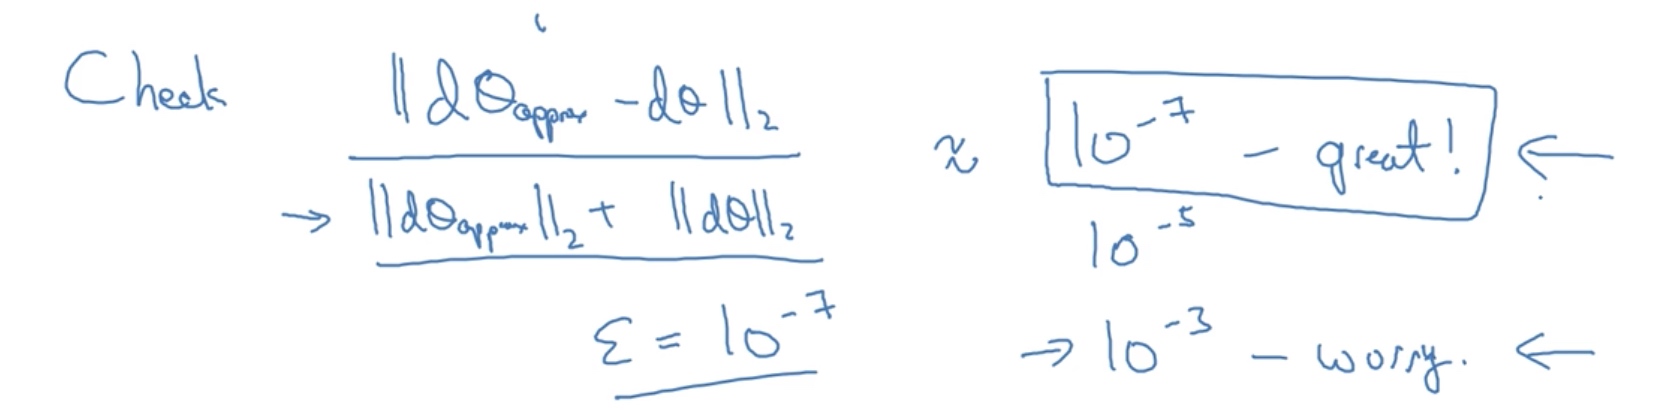 Check ||dθapprox - dθ||₂
→ ||dθapprox||₂ + ||dθ||₂
ε = 10⁻⁷
≈ 10⁻⁷ - great! ←
10⁻⁵
→ 10⁻³ - worry. ←